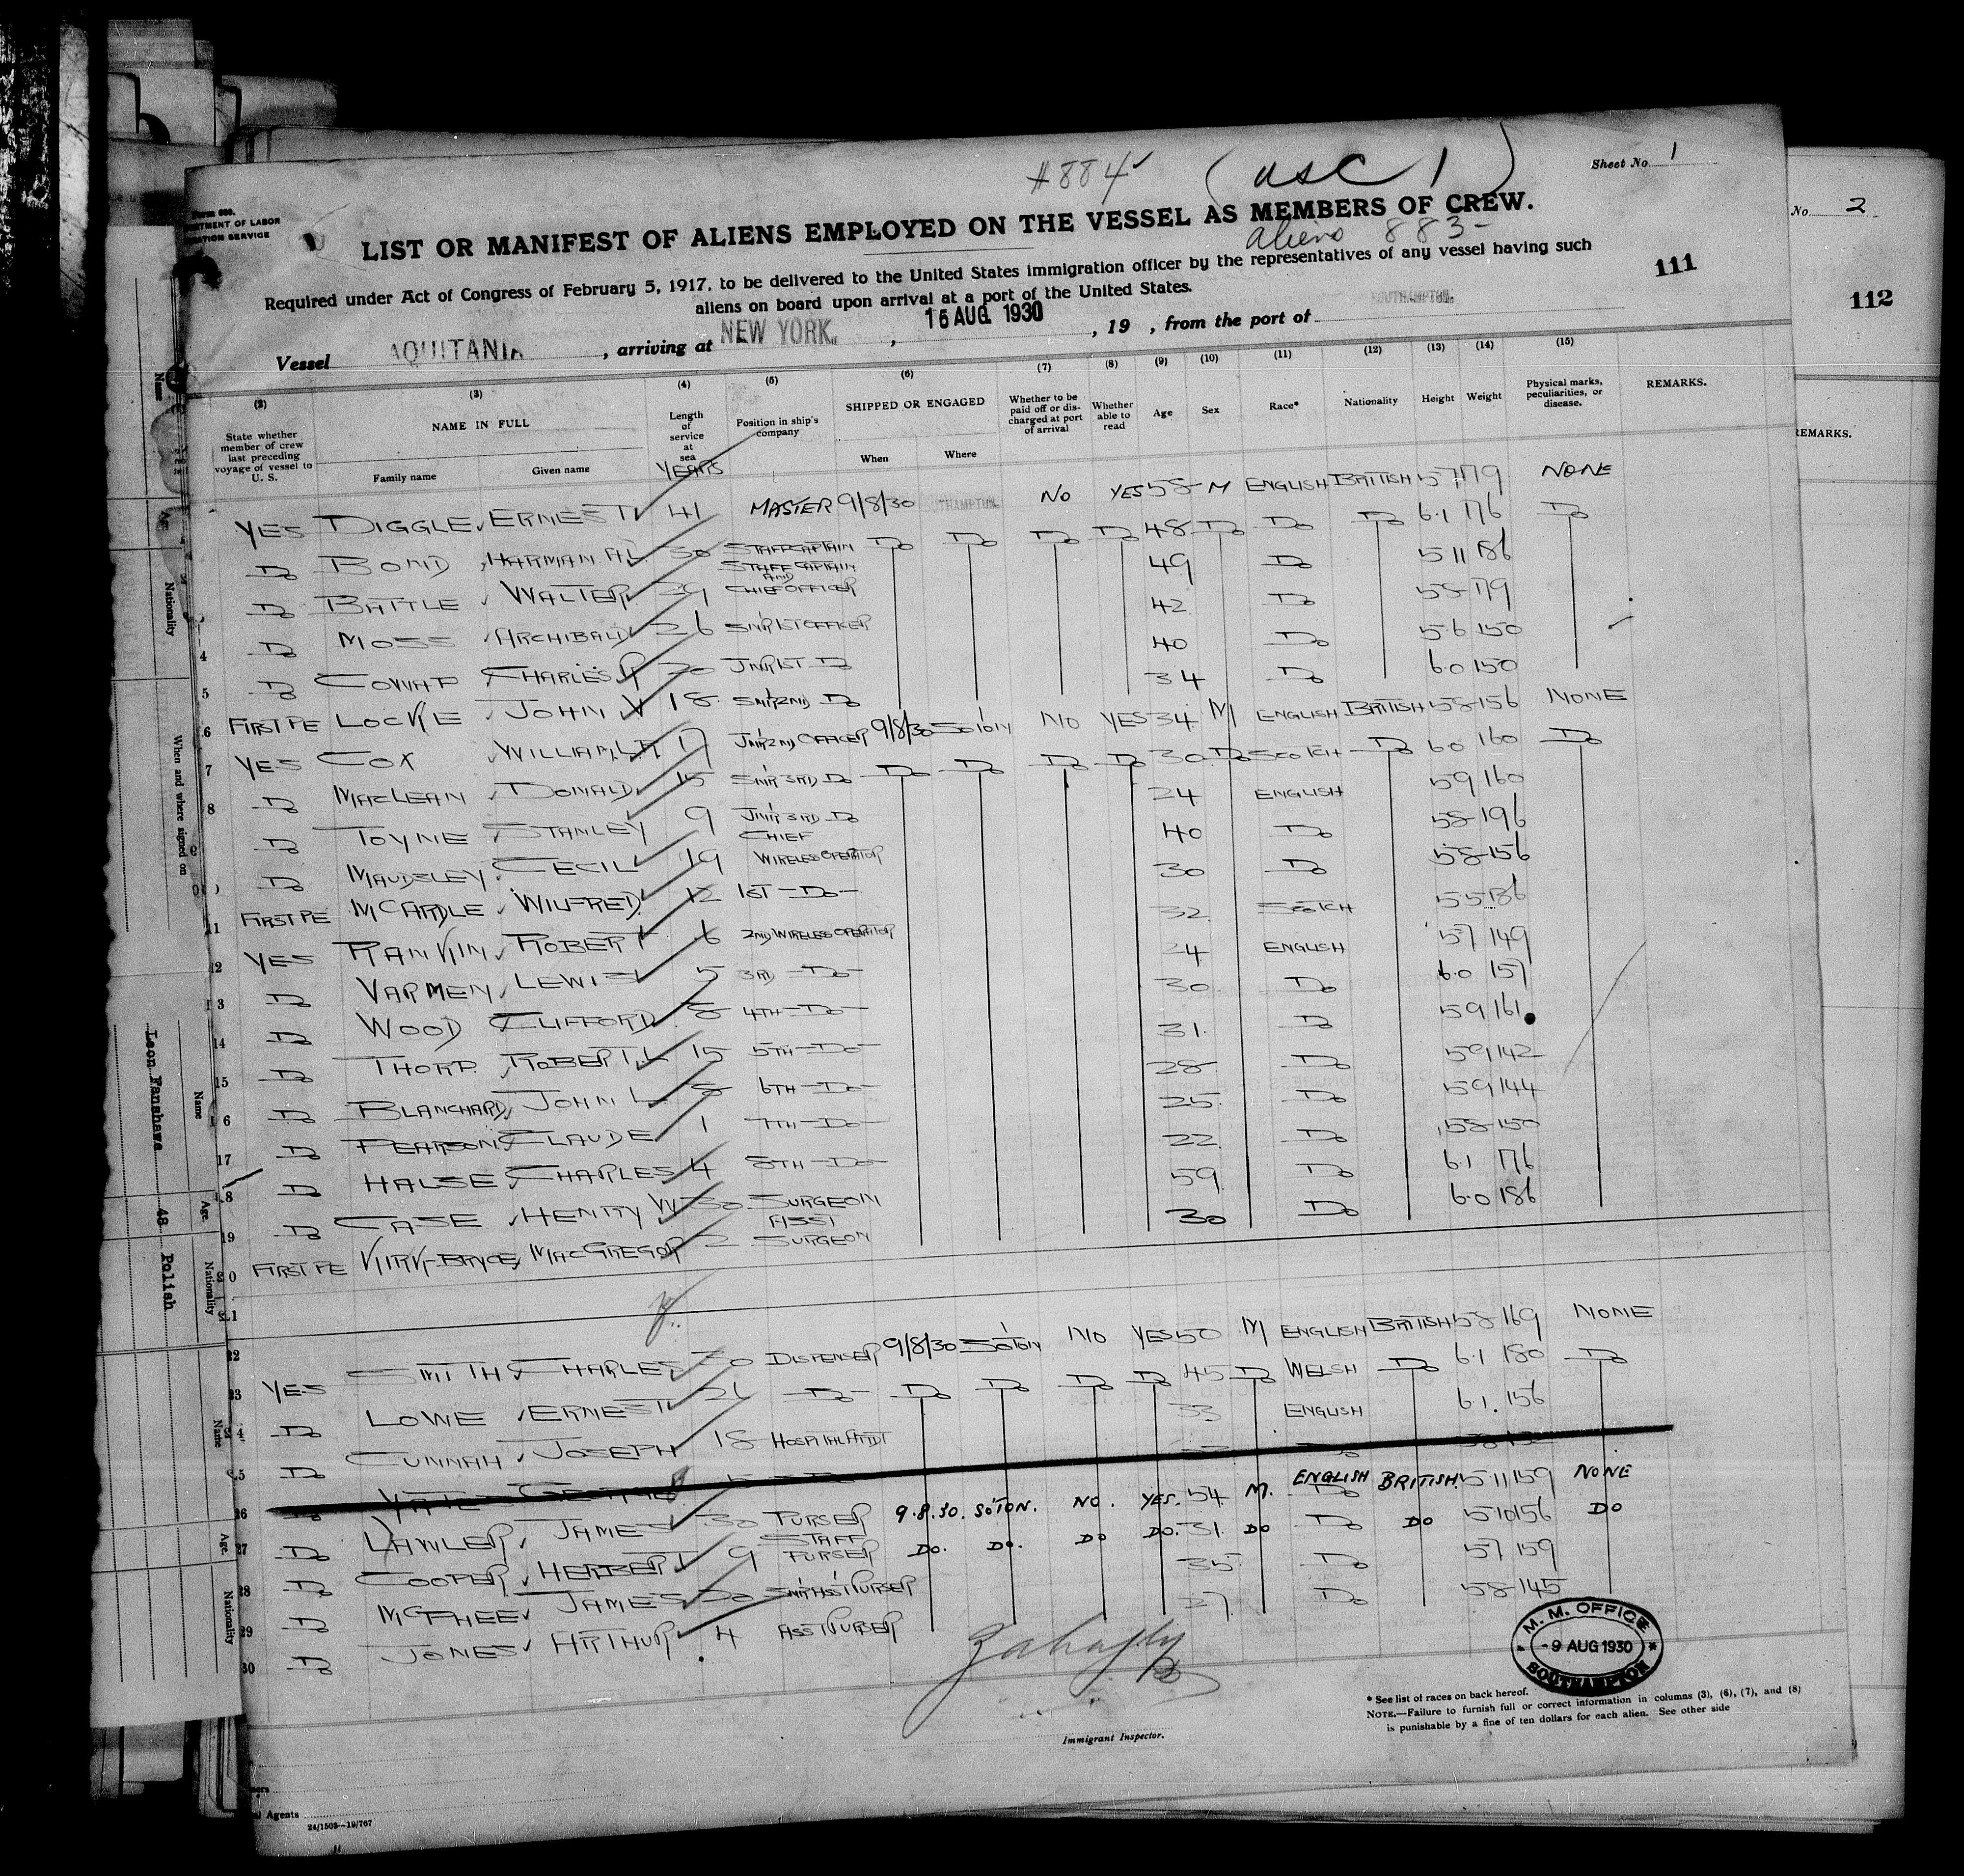 #884 (USC 1)
Sheet No. 1
Form 680.
DEPARTMENT OF LABOR
IMMIGRATION SERVICE
LIST OR MANIFEST OF ALIENS EMPLOYED ON THE VESSEL AS MEMBERS OF CREW.
aliens 883-
No. 2
Required under Act of Congress of February 5, 1917, to be delivered to the United States immigration officer by the representatives of any vessel having such
aliens on board upon arrival at a port of the United States.
111
112
Vessel AQUITANIA, arriving at NEW YORK, 15 AUG. 1930, 19 , from the port of SOUTHAMPTON.
(2) (3) (4) (5) (6) (7) (8) (9) (10) (11) (12) (13) (14) (15)
State whether member of crew last preceding voyage of vessel to U. S. NAME IN FULL Family name Given name Length of service at sea YEARS Position in ship's company SHIPPED OR ENGAGED When Where Whether to be paid off or discharged at port of arrival Whether able to read Age Sex Race* Nationality Height Weight Physical marks, peculiarities, or disease. REMARKS.
REMARKS.
YES DIGGLE ERNEST 41 MASTER 9/8/30 SOUTHAMPTON. NO YES 58 M ENGLISH BRITISH 5 7 179 NONE
Do BOND HARMAN 30 STAFF CAPTAIN Do Do Do Do 48 Do Do Do 6.1 176 Do
Do BATTLE WALTER 29 STAFF CAPTAIN AND CHIEF OFFICER 49 Do 5 11 186
Do MOSS ARCHIBALD 26 SNR 1ST OFFICER 42 Do 5 8 179
4 Do CHARLES R 20 JNR 1ST Do 40 Do 5.6 150
5 FIRST PE LOCKIE JOHN 18 SNR 2ND Do 34 Do 6.0 150
6 YES COX WILLIAM 17 JNR 2ND OFFICER 9/8/30 SO'TON NO YES 34 M ENGLISH BRITISH 5 8 156 NONE
7 Do MACLEAN DONALD 15 SNR 3RD Do Do Do Do Do 30 Do SCOTCH Do 6 0 160 Do
8 Do TOYNE STANLEY 9 JNR 3RD Do 24 ENGLISH 5 9 160
9 Do MAUDSLEY CECIL 19 CHIEF WIRELESS OPERATOR 40 Do 5 8 196
FIRST PE MCARDLE WILFRED 12 1ST Do 30 Do 5 8 156
11 YES RANKIN ROBERT 6 2ND WIRELESS OPERATOR 32 SCOTCH 5 5 186
12 Do VARMEN LEWIS 5 3RD Do 24 ENGLISH 5 7 149
13 Do WOOD CLIFFORD 8 4TH Do 30 Do 6.0 157
14 Do THORP ROBERT 15 5TH Do 31 Do 5 9 161
15 Do BLANCHARD JOHN L 8 6TH Do 28 Do 5 9 142
16 Do PEARSON CLAUDE 1 7TH Do 25 Do 5 9 144
17 Do HALSE CHARLES 4 8TH Do 22 Do 5 8 150
18 Do CASE HENRY W 30 SURGEON 59 Do 6.1 176
19 FIRST PE KIRK-BRYCE MACGREGOR 2 ASST SURGEON 30 Do 6.0 186
22 YES SMITH CHARLES 30 DISPENSER 9/8/30 SO'TON NO YES 50 M ENGLISH BRITISH 5 8 169 NONE
23 Do LOWE ERNEST 26 Do Do Do Do Do 45 Do WELSH Do 6.1 180 Do
24 Do CUNNAH JOSEPH 18 HOSPITAL ATTDT 33 ENGLISH 6.1. 156
26 Do LAWLER JAMES 30 PURSER 9.8.30. SO'TON. NO. YES. 54 M. ENGLISH BRITISH. 5 11 159 NONE
27 Do COOPER HERBERT 9 STAFF PURSER DO. DO. DO DO. 31 DO Do DO 5 10 156 DO
28 Do MCPHEE JAMES 20 SNR ASST PURSER 35 Do 5 7 159
29 Do JONES ARTHUR 4 ASST PURSER 27 Do 5 8 145
30
M. M. OFFICE
- 9 AUG 1930
SOUTHAMPTON
* See list of races on back hereof.
NOTE.—Failure to furnish full or correct information in columns (3), (6), (7), and (8)
is punishable by a fine of ten dollars for each alien. See other side
Immigrant Inspector.
Agents
24/1503—19/767
Nationality
When and where signed on
Name
Leon Fanshawe
Age
48
Nationality
Polish
Name
Age.
Nationality